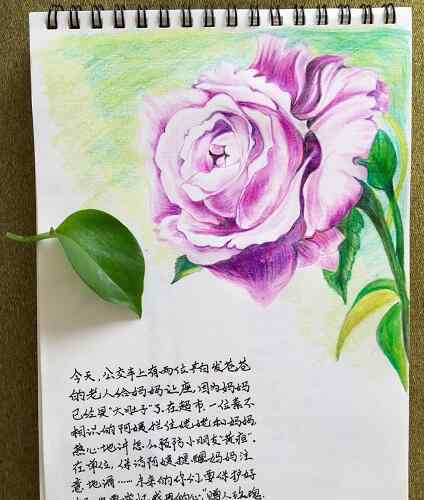 今天,公交车上有两位白发苍苍
的老人给妈妈让座,因为妈妈
已经是"大肚子"了,在超市,一位素不
相识的阿姨拦住姥姥和妈妈
热心地讲怎么预防小朋友"黄疸",
在单位,保洁阿姨提醒妈妈注
意地滑……未来的你们要保护好
感恩的心,"赠人玫瑰